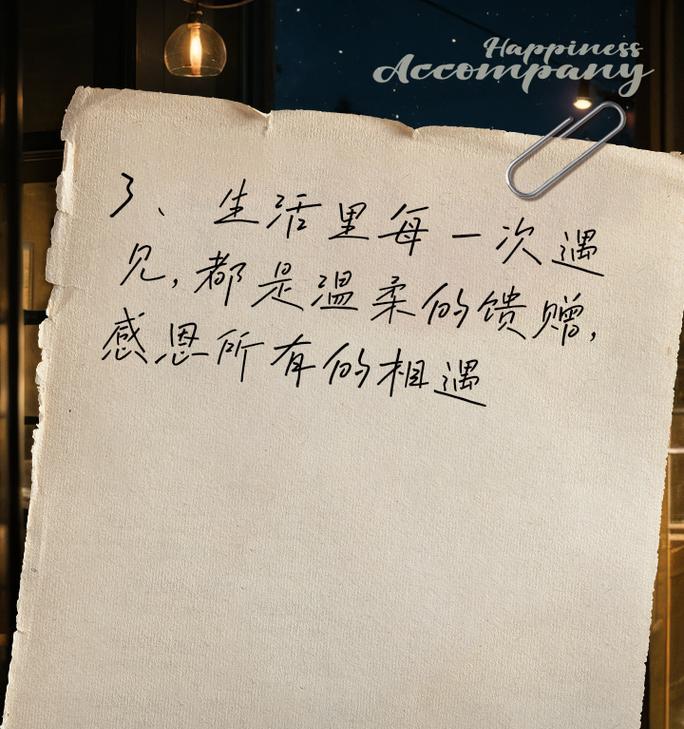 Happiness
Accompany
3、生活里每一次遇
见,都是温柔的馈赠,
感恩所有的相遇